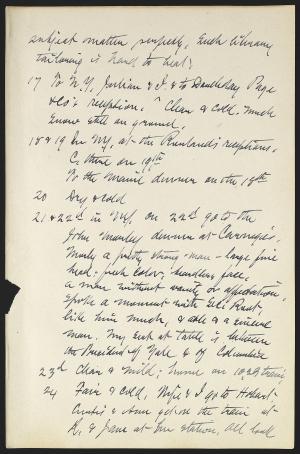 subject matter perfectly, such library
tailoring is hard to beat.
17 To N.Y, Julian & I, & to Doubleday Page
& Co's reception. Clear & cold. Much
snow still on ground.
18 & 19 In NY, at the Rowland's receptions.
C. there on 19th
To the dinner on the 18th
20 Dry & cold
21 & 22d in NY. on 22d go to the
John Morley dinner at Carnegie's.
Morley a pretty strong man - large fine
head - fresh color, handsome face,
a man without vanity or affectation,
spoke a moment with Eli. Root,
like him much, & able & a sincere
man. My seat at table is between
the President of Yale & of Columbia
23d Clear & mild; home on 10 train
24 Fair & cold. Wife & I go to Hobart.
Curtis & Ann get on the train at
K, & Jane at station. All